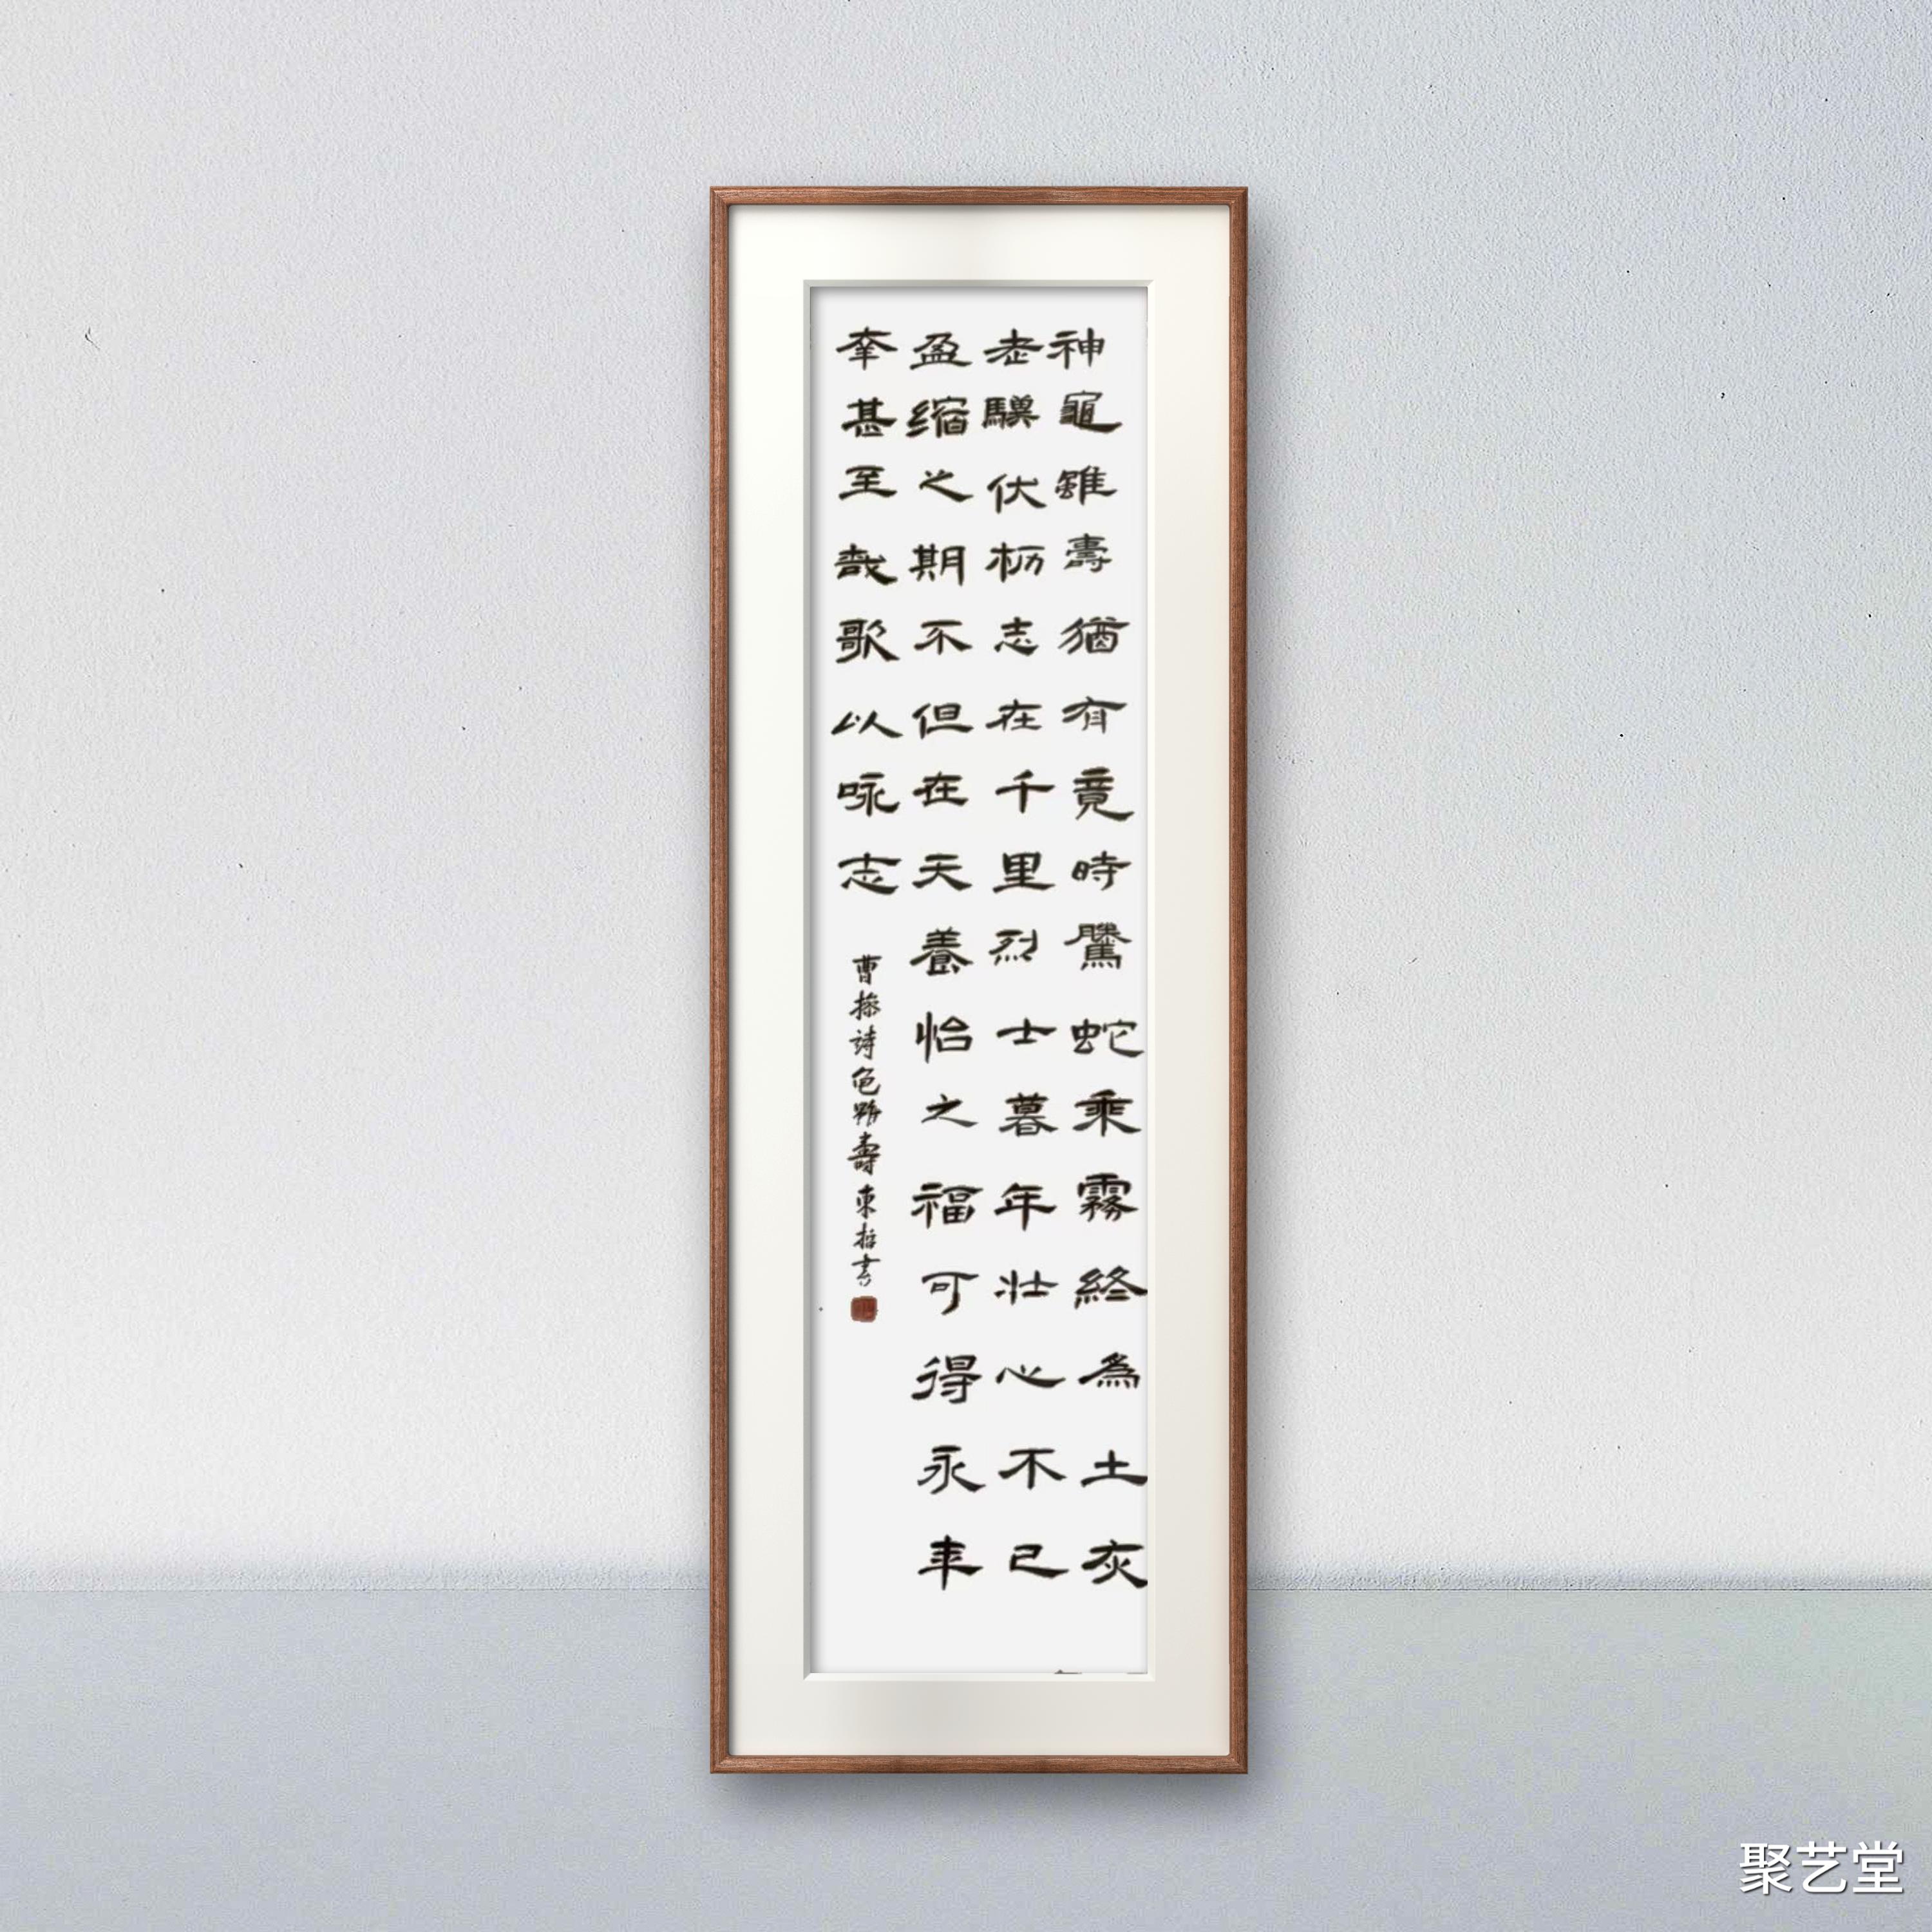 神龜雖壽猶有竟時騰蛇乘霧終為土灰
老驥伏枥志在千里烈士暮年壮心不已
盈缩之期不但在天養怡之福可得永年
幸甚至哉歌以咏志
曹操詩龟雖壽東書
聚艺堂